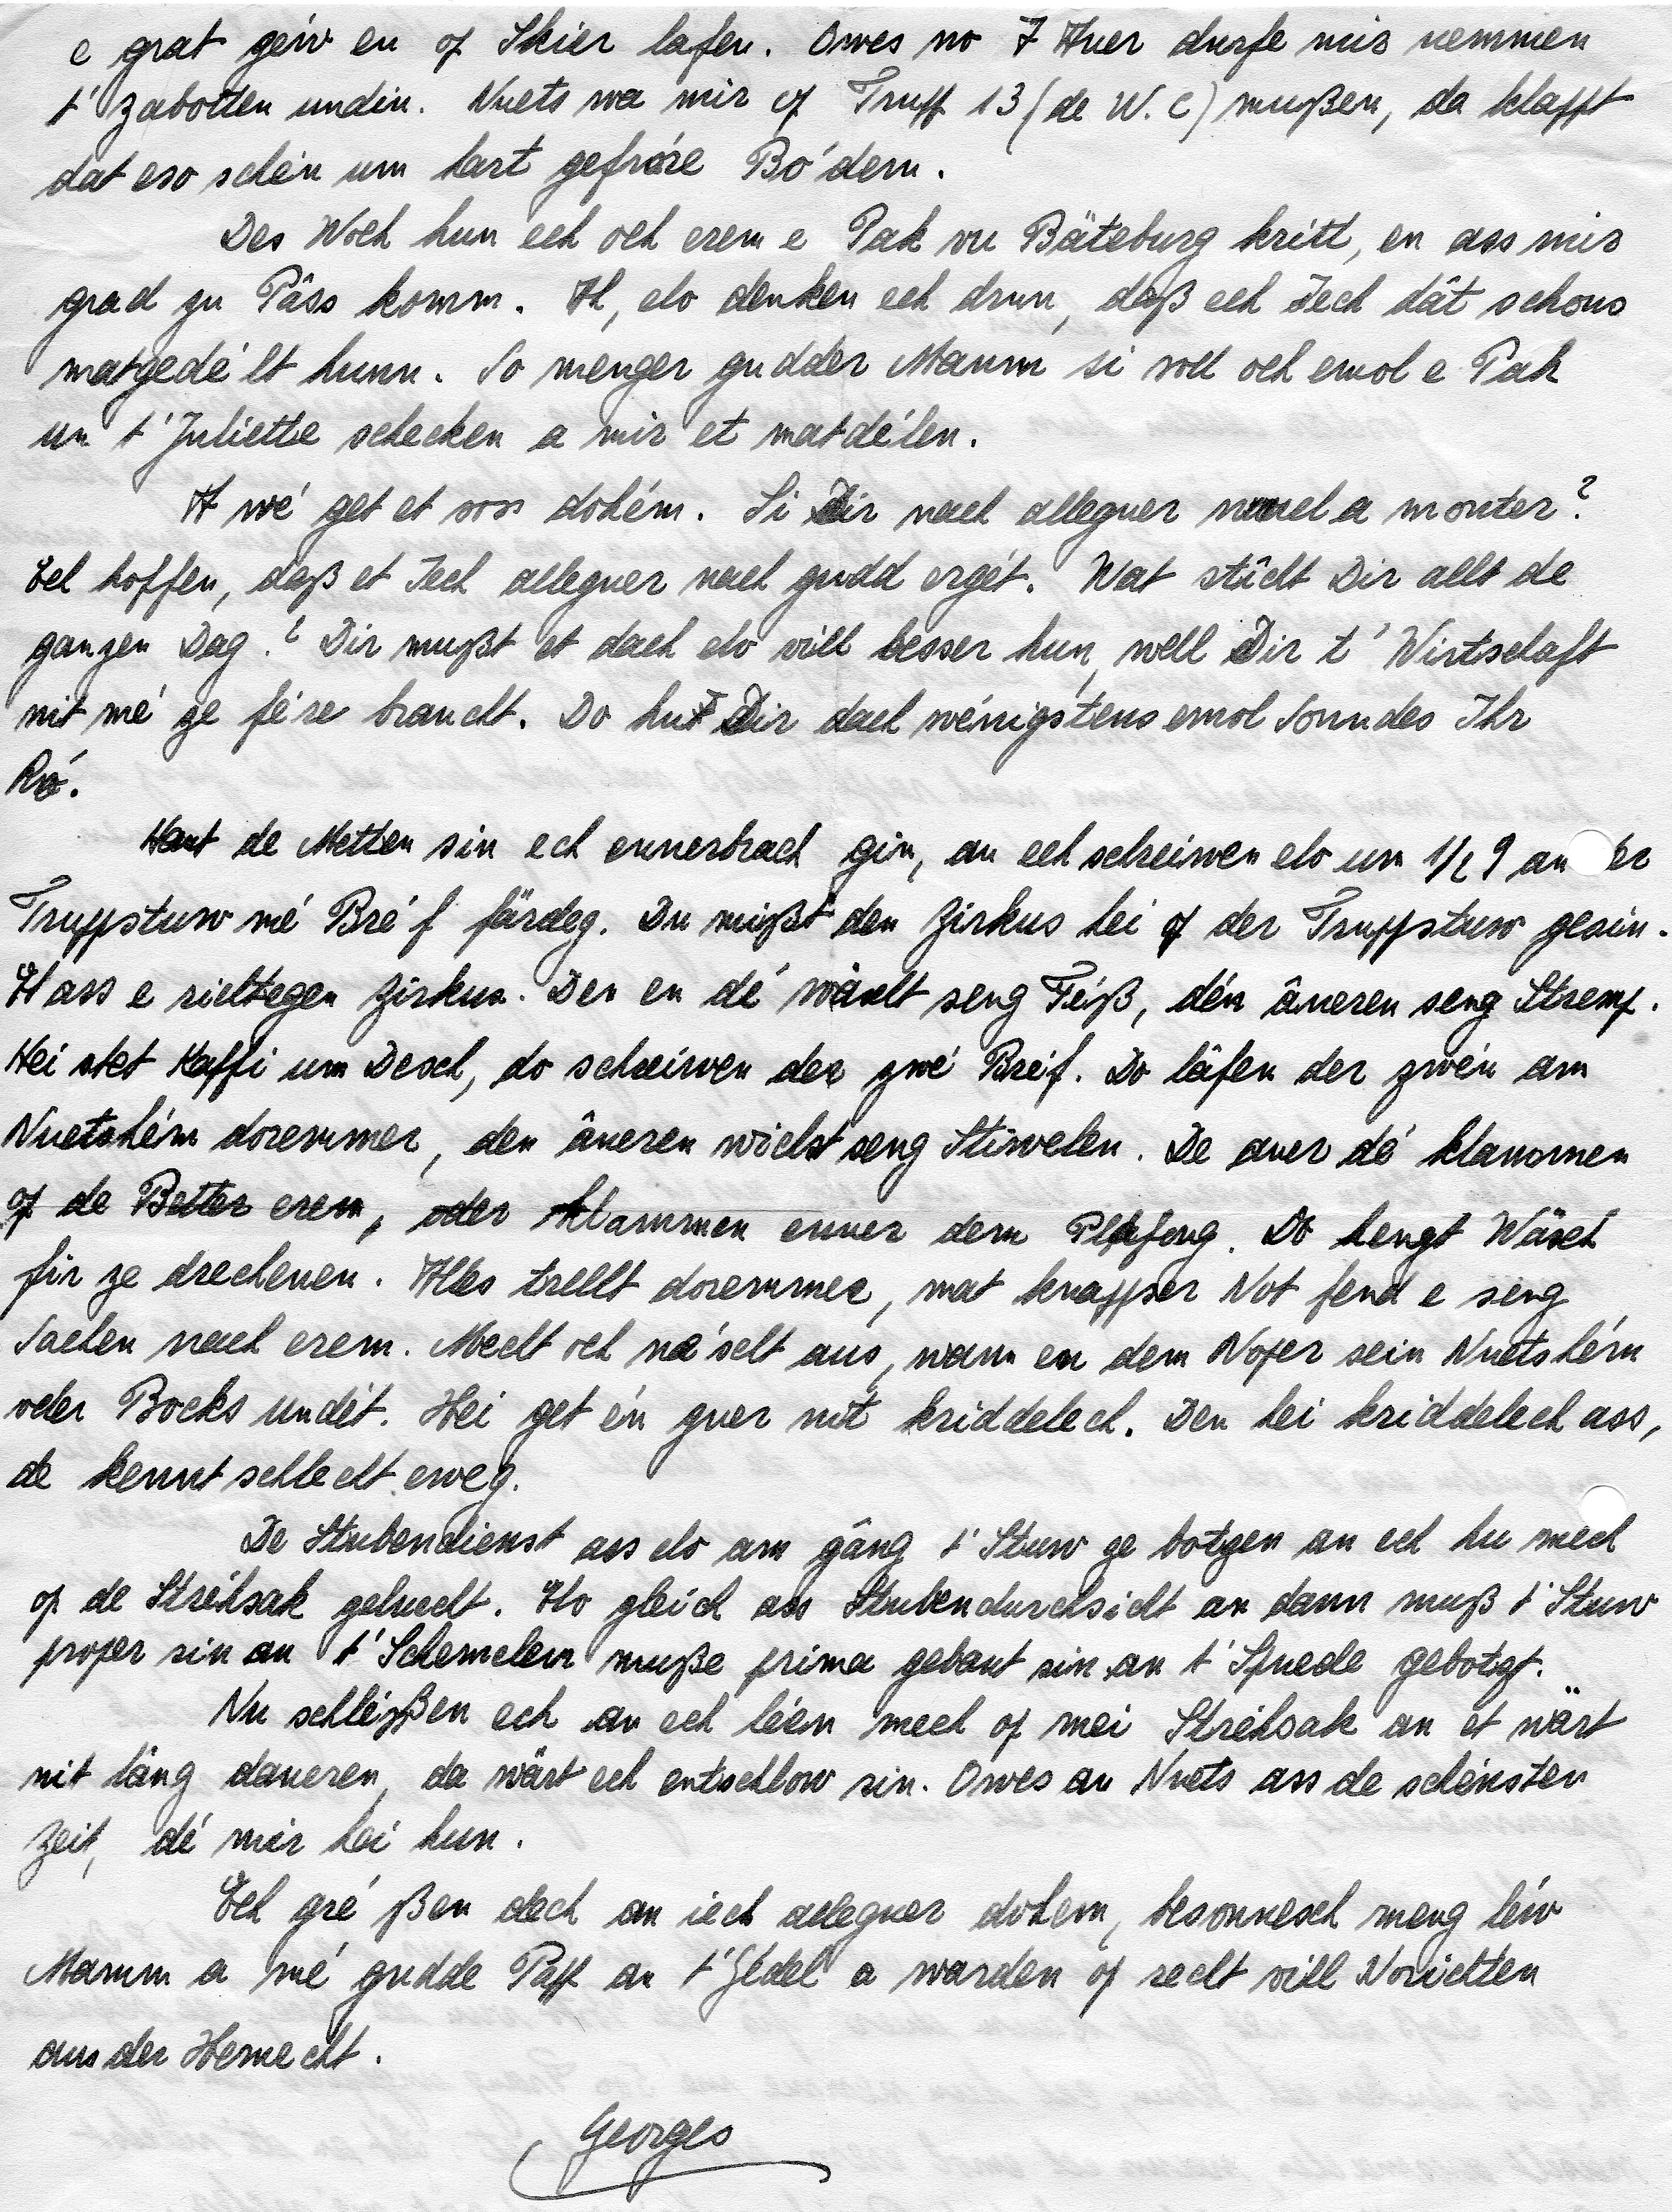 e grat géiv en op Skier lafen. Owes no 7 Auer durfe mir nemmen
t'Zabotten undin. Nuets wa mir op Trupp 13 (de W.C) mußen, da klappt
dat eso schén um hart gefróre Bo'dem.
Des Woch hun ech och erem e Pak vu Bäteburg kritt, en ass mir
grad zu Pâss komm. A, elo denken ech drun, daß ech Iech dât schons
matgedé'lt hunn. So menger gudder Mamm si soll och emol e Pak
un t'Juliette schecken a mir et matdé'len.
A wé get et soss dohém. Si Dir nach alleguer  a monter?
Ech hoffen, daß et Iech alleguer nach gudd ergét. Wat stîcht Dir allt de
ganzen Dag? Dir mußt et dach elo vill besser hun, well Dir t'Wirtschaft
nit mé ze fé're braucht. Do hut Dir dach wénigstens emol Sonndes Ihr
Ró.
Haut de Metten sin ech ennerbrach gin, an ech schreiwen elo um 1/2 9 an der
Truppstuw mé Bré'f färdeg. Du mißt den Zirkus hei op der Truppstuw gesin.
Et ass e richtegen Zirkus. Den en dé wäscht seng Féiß, dén âneren seng Stremp.
Hei stet Kaffi um Desch, do schreiwen der zwé Bréif. Do lâfen der zwén am
Nuetshém doremmer, den âneren wichst seng Stiwelen. De aner dé klammen
op de Better erem, oder klammen enner dem Plafong. Do hengt Wäsch
fir ze drechenen. Alles trellt doremmer, mat knapper Not fend e seng
Sachen nach erem. Mecht och nä'scht aus, wann en dem Noper sein Nuetshém
oder Bocks undét. Hei get én guer nit kriddelech. Den hei kriddelech ass,
de kennt schlecht eweg.
De Stubendienst ass elo am gâng t'Stuw ze botzen an ech hu mech
op de Stréhsak geluecht. Elo gleich ass Stubendurchsicht an dann muß t'Stuw
proper sin an t'Schemelen muße prima gebaut sin an t'Spuede gebotzt.
Nu schléißen ech an ech léen mech op mei Stréhsak an et wärt
nit lâng daueren, da wärt ech entschlow sin. Owes an Nuets ass de schénsten
Zeit, dé mir hei hun.
Ech gré'ßen dech an iech alleguer dohem, besonnesch meng léiw
Mamm a mé gudde Papp an t' a warden op recht vill Noriichten
aus der Hemecht.
Georges